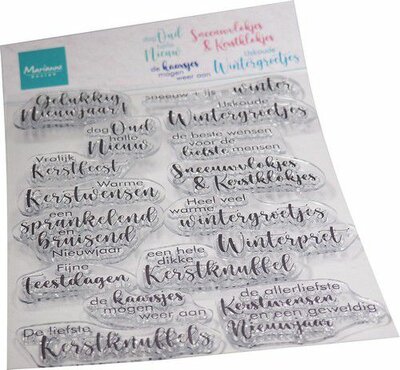 Marianne
DESIGN
dag Oud
hallo
Nieuw
de kaarsjes
mogen
weer aan
Sneeuwvlokjes
& Kerstklokjes
IJskoude
Wintergroetjes
Gelukkig
Nieuwjaar!
dag Oud
hallo
Nieuw
Vrolijk
Kerstfeest
Warme
Kerstwensen
een
sprankelend
en
bruisend
Nieuwjaar
Fijne
feestdagen
de
kaarsjes
mogen
weer aan
De liefste
Kerstknuffels
sneeuw ijs winter
IJskoude
Wintergroetjes
de beste wensen
voor de
liefste mensen
Sneeuwvlokjes
& Kerstklokjes
Heel veel
warme
wintergroetjes
Winterpret
een hele
dikke
Kerstknuffel
de allerliefste
Kerstwensen
en een geweldig
Nieuwjaar